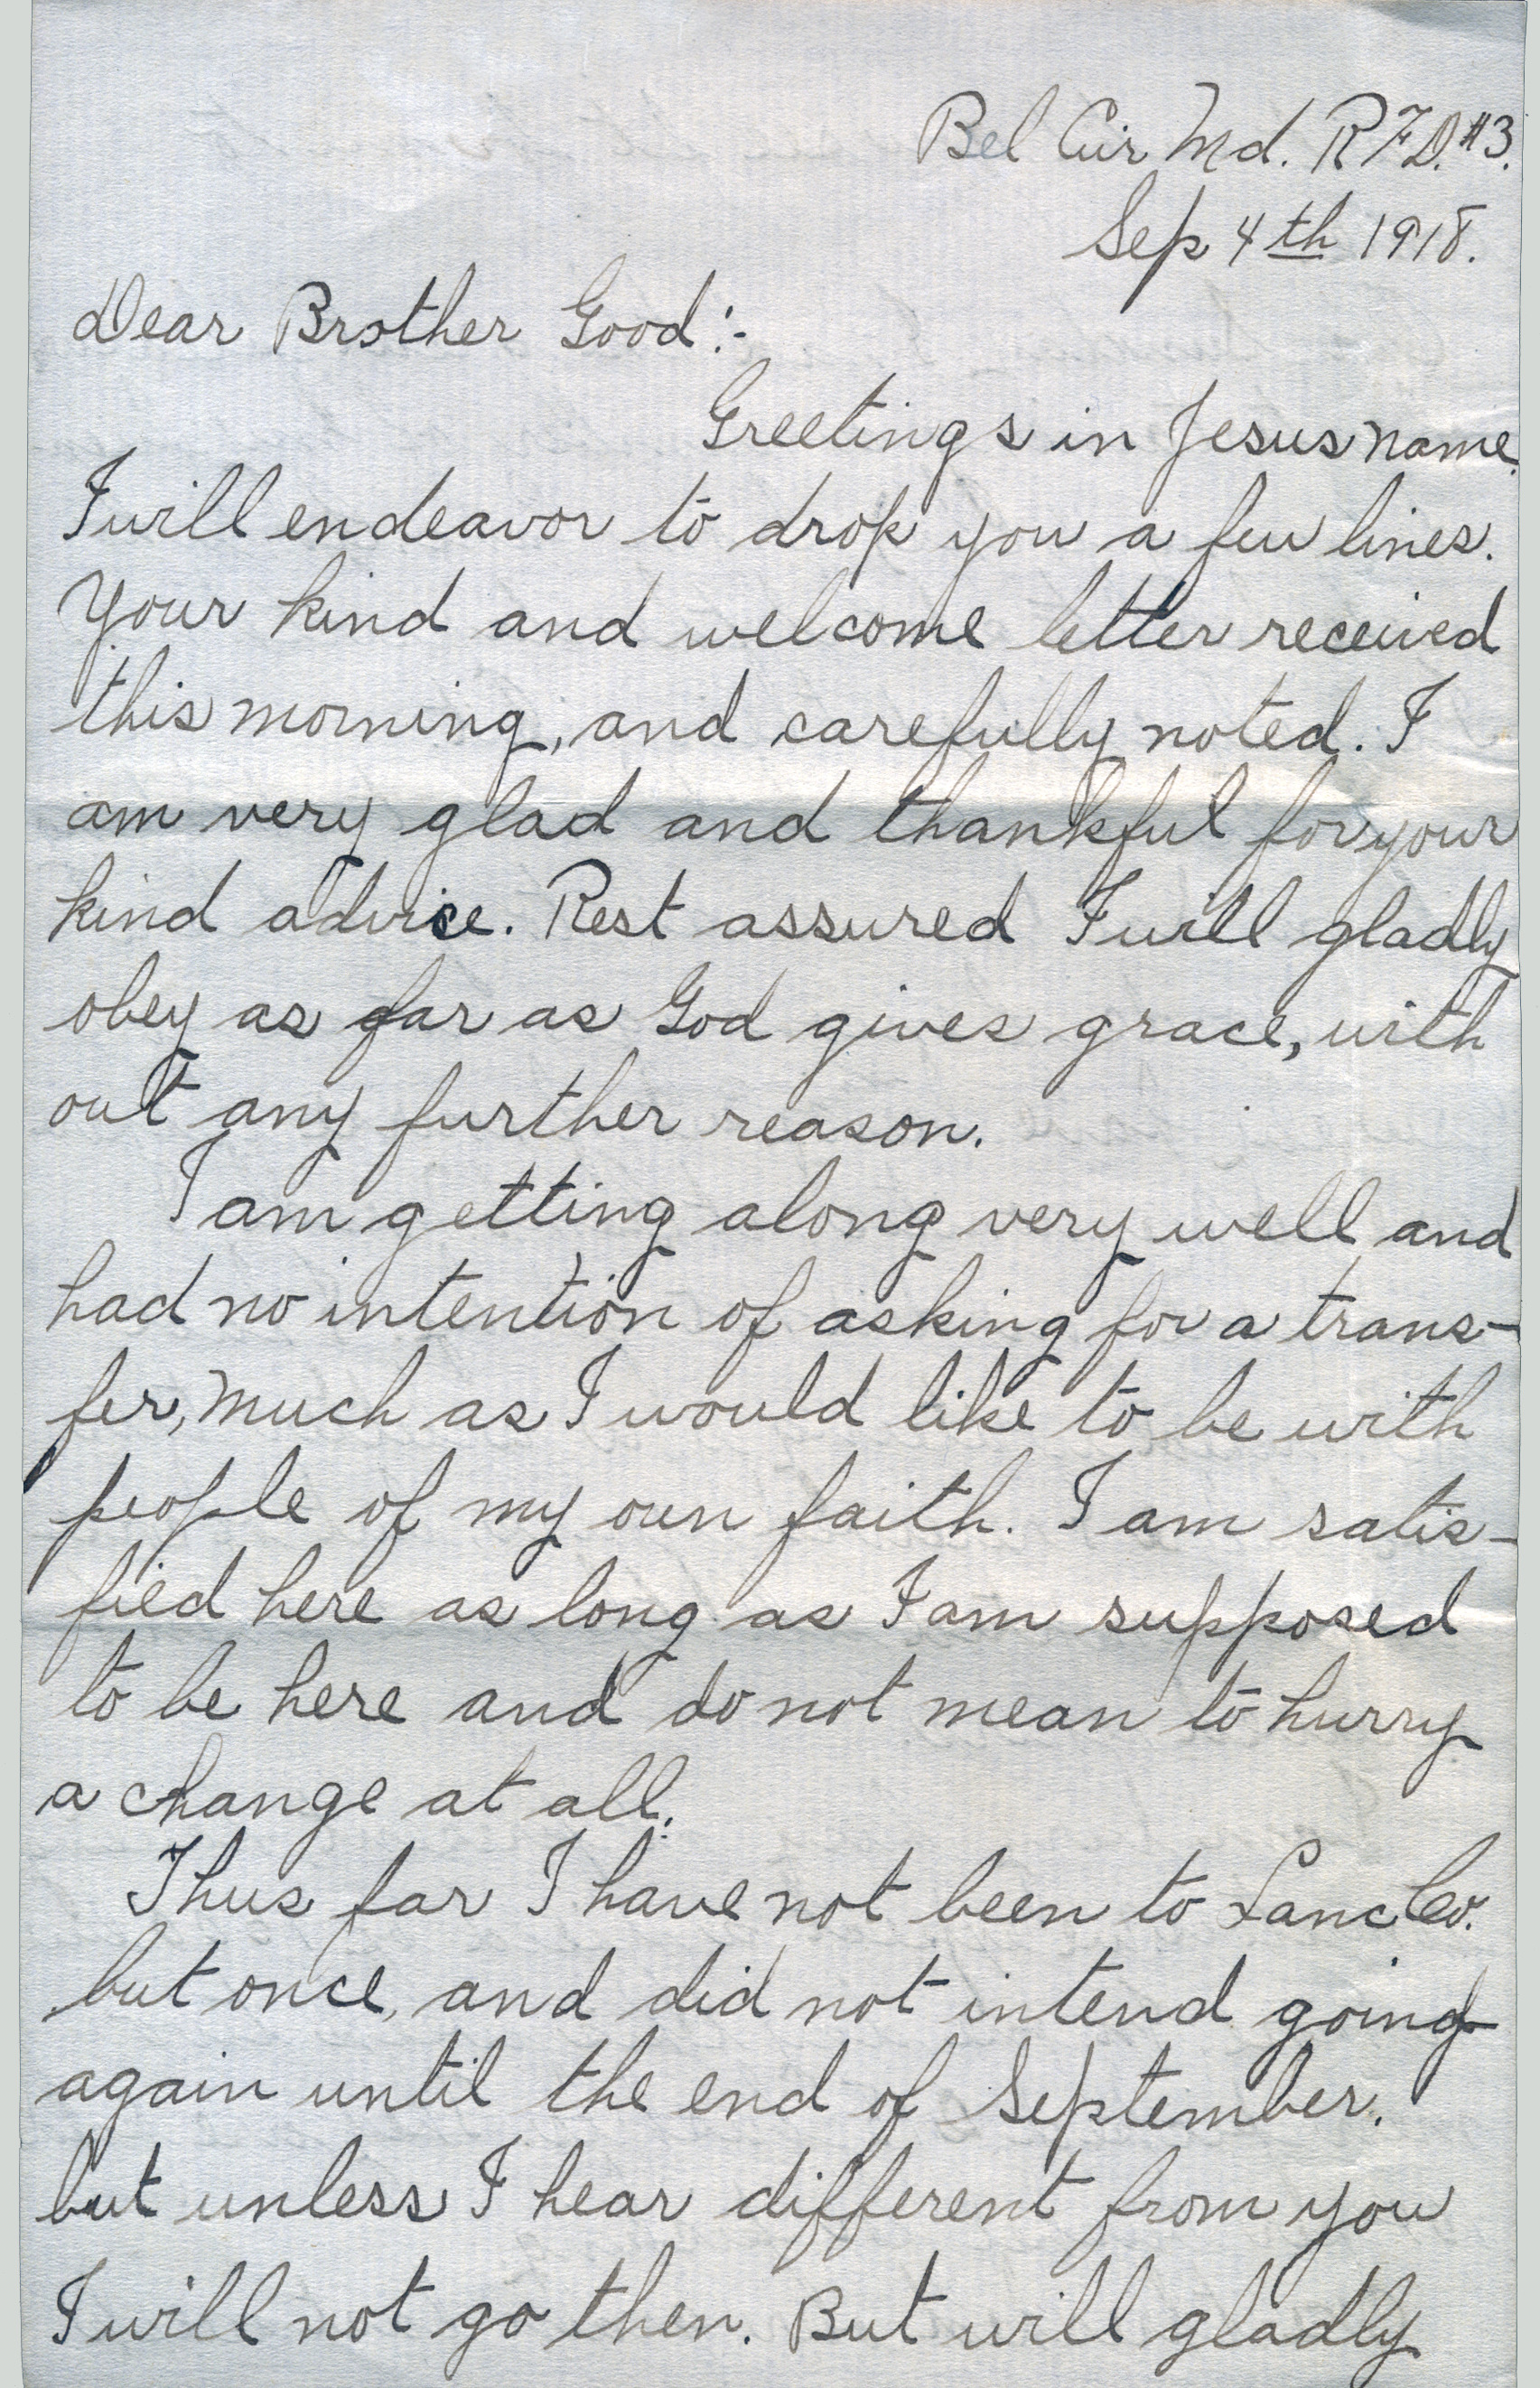 Bel Air Md. R.F.D. #3.
Sep 4th 1918.
Dear Brother Good:-
Greetings in Jesus name.
I will endeavor to drop you a few lines.
Your kind and welcome letter received
this morning, and carefully noted. I
am very glad and thankful for your
kind advice. Rest assured I will gladly
obey as far as God gives grace, with
out any further reason.
I am getting along very well and
had no intention of asking for a trans-
fer, much as I would like to be with
people of my own faith. I am satis-
fied here as long as I am supposed
to be here and do not mean to hurry
a change at all.
Thus far I have not been to Lanc Co.
but once, and did not intend going
again until the end of September.
but unless I hear different from you
I will not go then. But will gladly